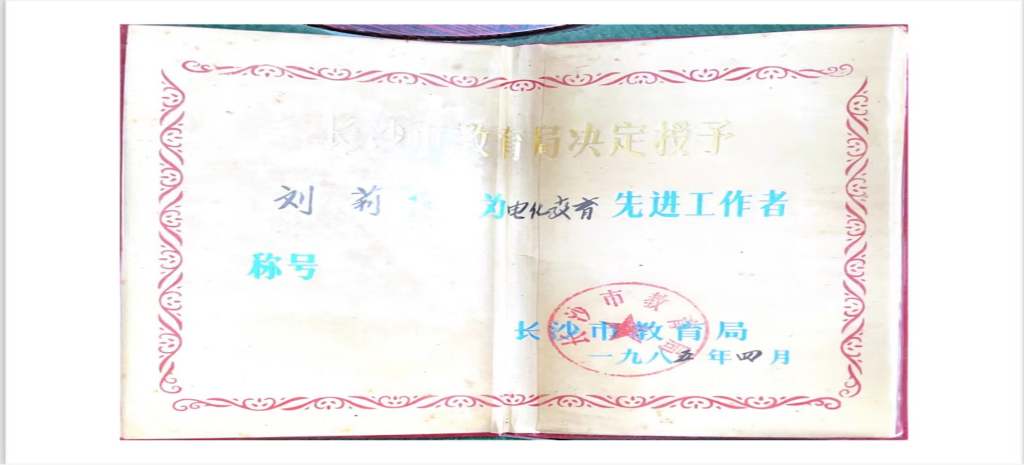 长沙市教育局决定授予
刘莉 为电化教育先进工作者
称号
长沙市教育局
一九八五年四月
长沙市教育局